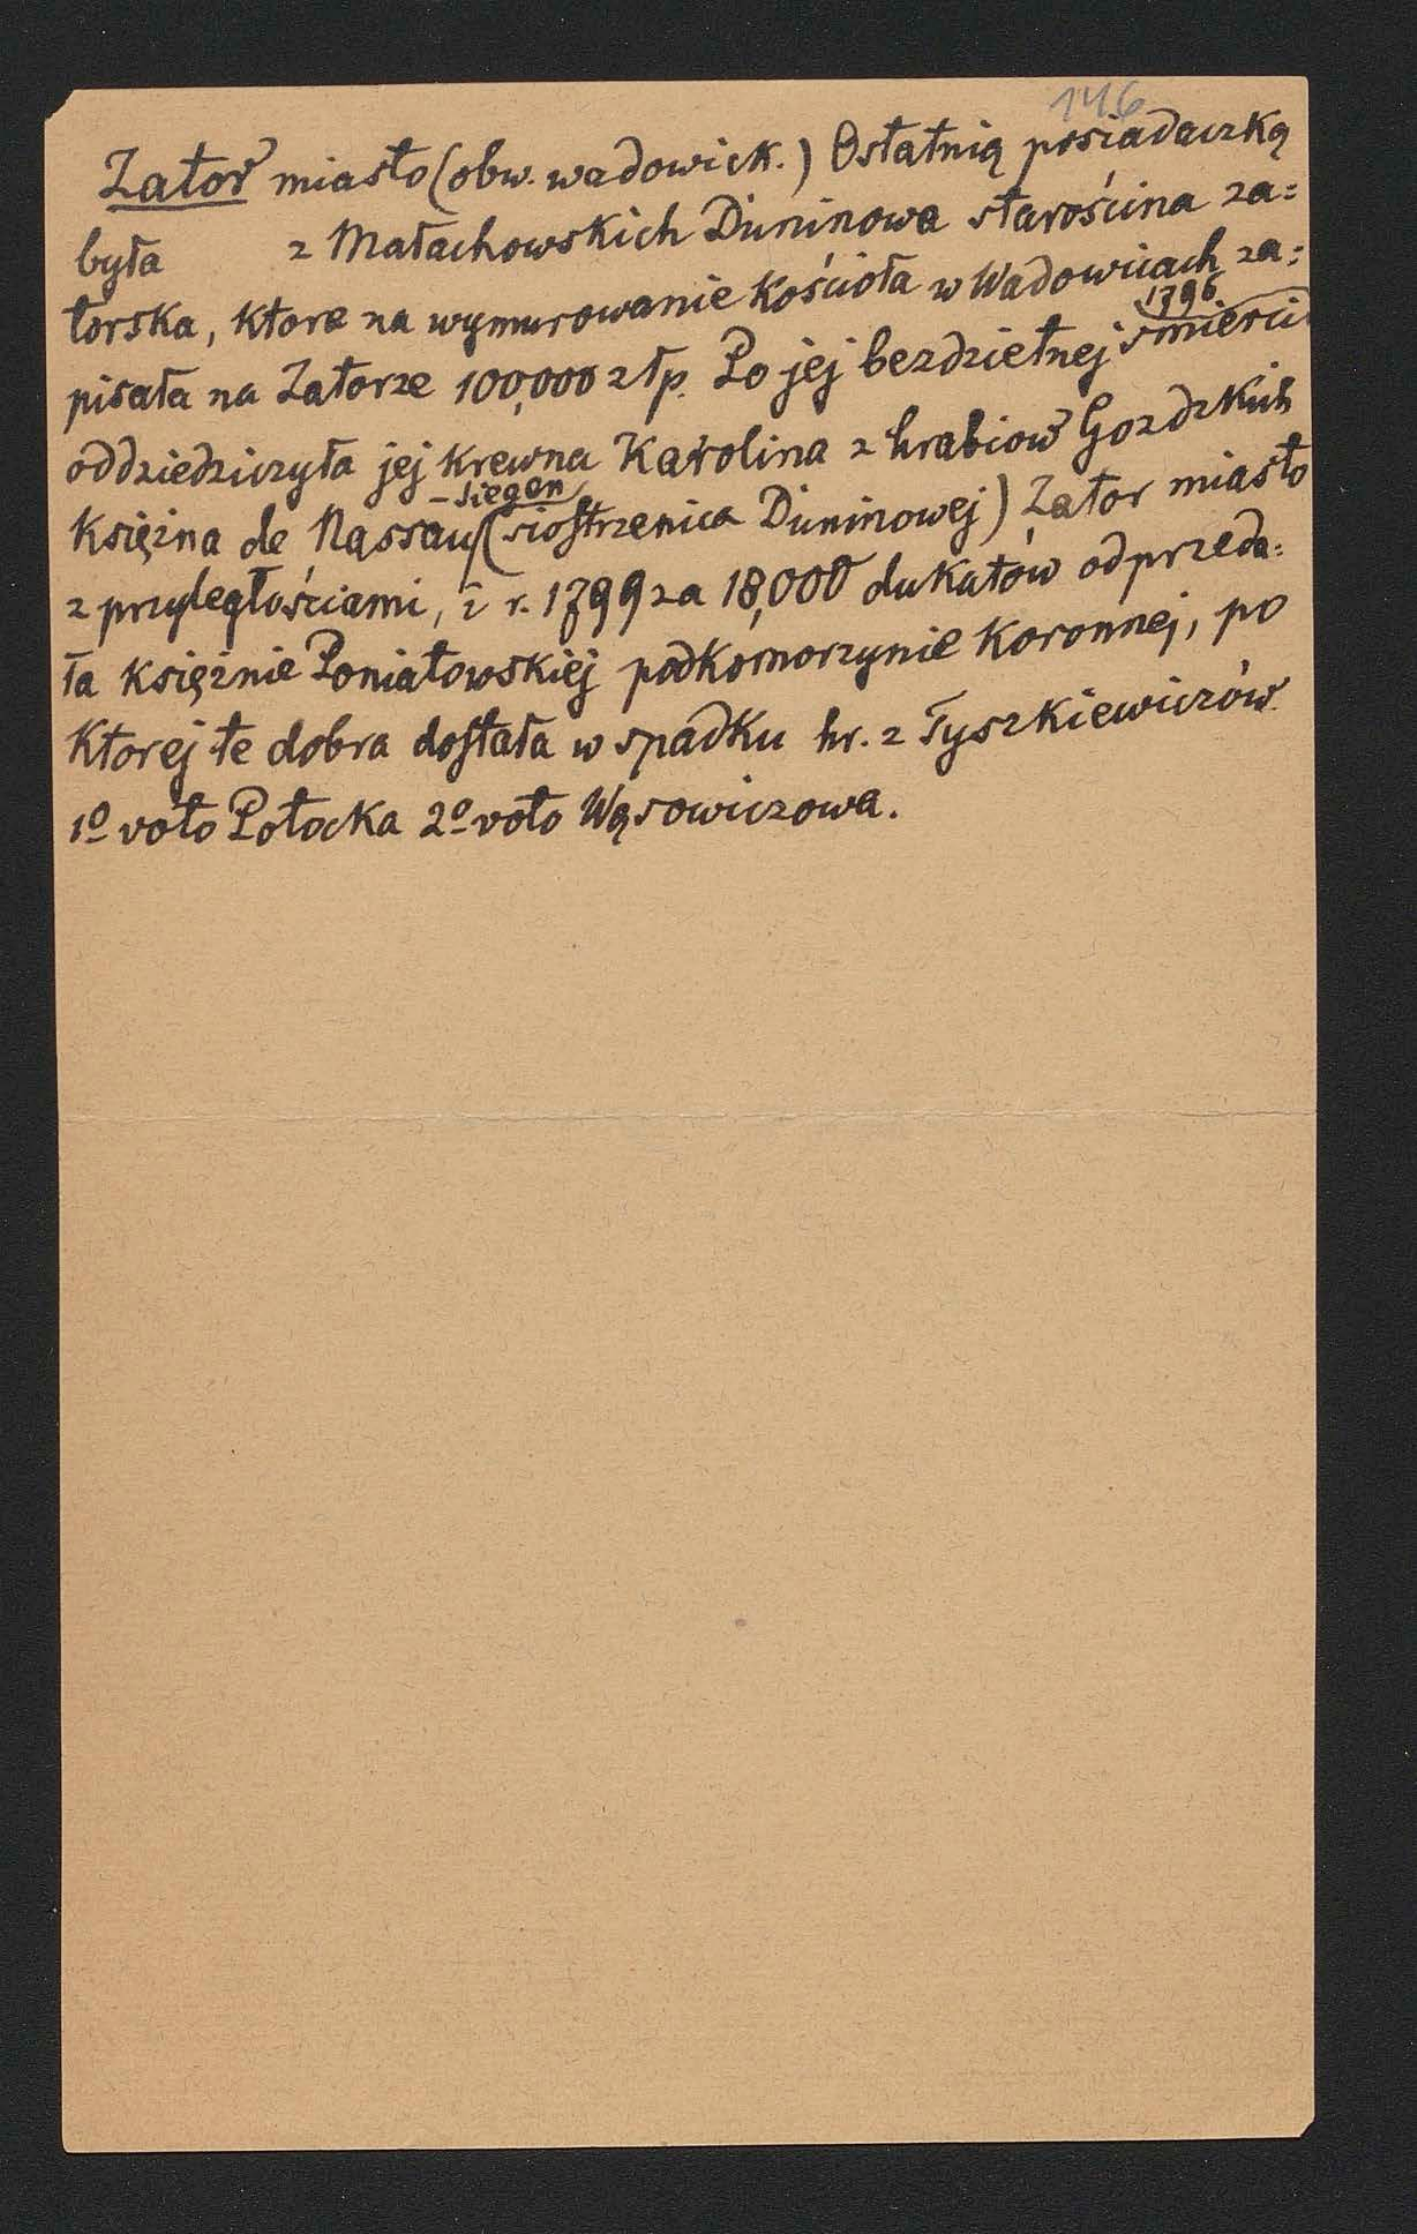 146
Zator miasto (obw. wadowick.) Ostatnią posiadaczką
była z Małachowskich Duninowa starościna za=
torska, ktora na wymurowanie Kościoła w Wadowicach za=
1796
pisała na Zatorze 100,000 złp. Po jej bezdzietnej śmierci
oddziedziczyła jej krewna Karolina z hrabiow Gozdzkich
-Siegen
Księżna de Nassau (siostrzenica Duninowej) Zator miasto
z przyległościami, i r. 1799 za 18,000 dukatów odprzeda=
ła księżnie Poniatowskiej podkomorzynie Koronnej, po
Ktorej te dobra dostała w spadku hr. z Tyszkiewiczów
1º voto Potocka 2º voto Wąsowiczowa.